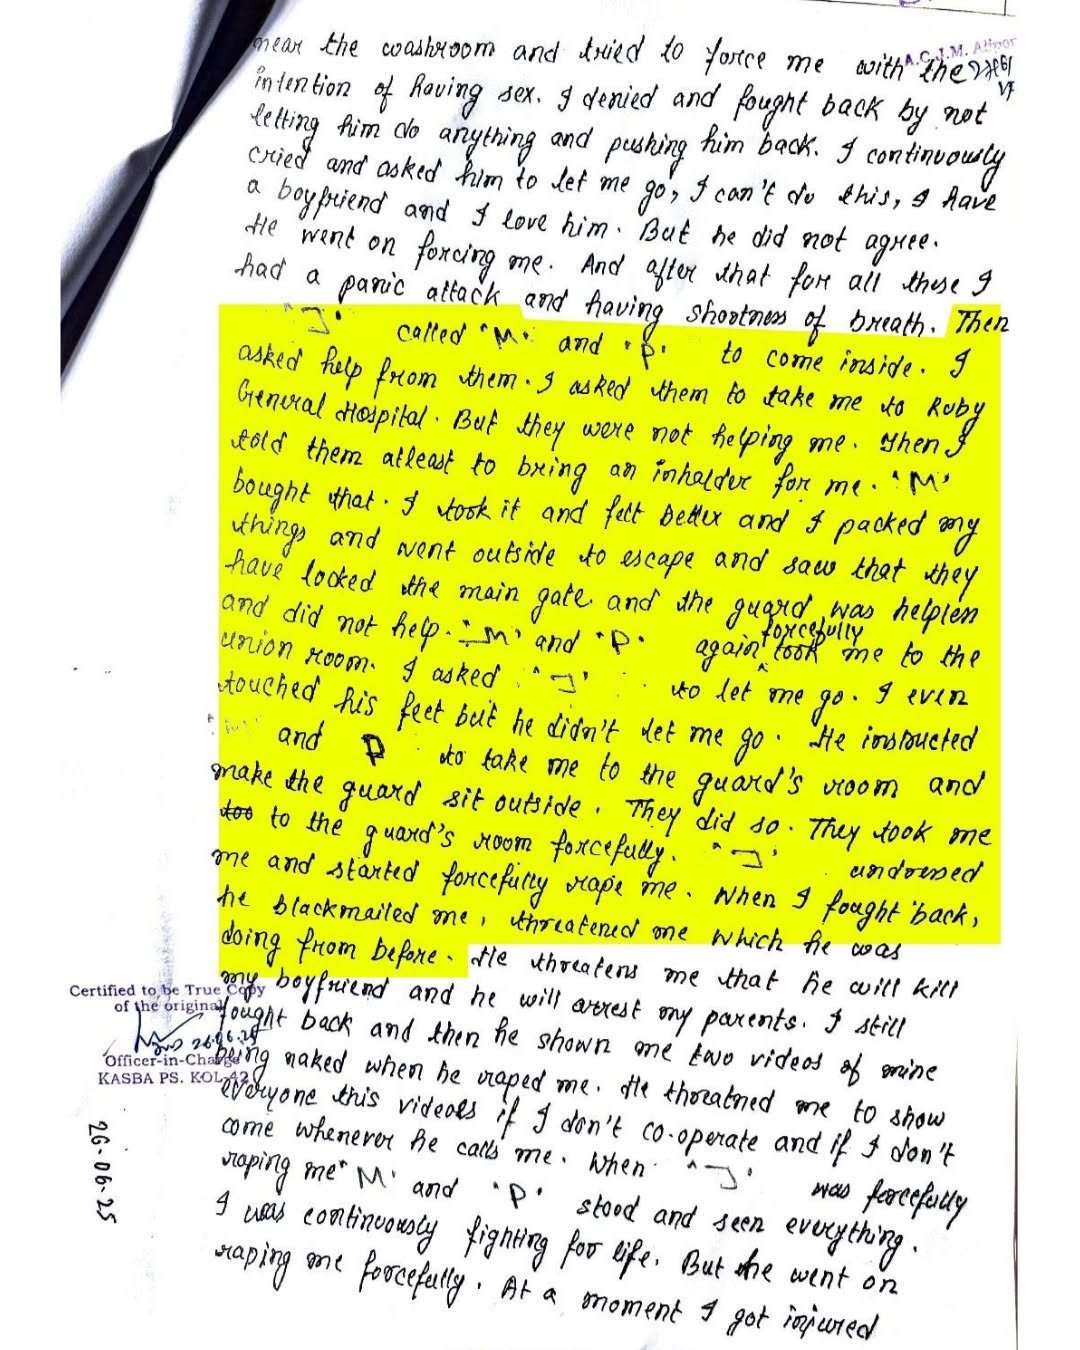 A.C.J.M. Alipor
near the washroom and tried to force me with the
intention of having sex. I denied and fought back by not
letting him do anything and pushing him back. I continuously
cried and asked him to let me go, I can't do this, I have
a boyfriend and I love him. But he did not agree.
He went on forcing me. And after that for all these I
had a panic attack and having shootness of breath. Then
"J" called "M" and "P" to come inside. I
asked help from them. I asked them to take me to Ruby
General Hospital. But they were not helping me. Then I
told them atleast to bring an inhalder for me. "M"
bought that. I took it and felt better and I packed my
things and went outside to escape and saw that they
have locked the main gate and the guard was helpless
and did not help. "M" and "P" again forcefully took me to the
union room. I asked "J" to let me go. I even
touched his feet but he didn't let me go. He instructed
"M" and P to take me to the guard's room and
make the guard sit outside. They did so. They took me
too to the guard's room forcefully. "J" undressed
me and started forcefully rape me. When I fought back,
he blackmailed me, threatened me which he was
doing from before. He threatens me that he will kill
my boyfriend and he will arrest my parents. I still
fought back and then he shown me two videos of mine
being naked when he raped me. He threatned me to show
everyone this videos if I don't co-operate and if I don't
come whenever he calls me. When "J" was forcefully
raping me "M" and "P" stood and seen everything.
I was continuously fighting for life. But he went on
raping me forcefully. At a moment I got injured
Certified to be True Copy
of the original
26.06.25
Officer-in-Charge
KASBA PS. KOL-42
26.06.25